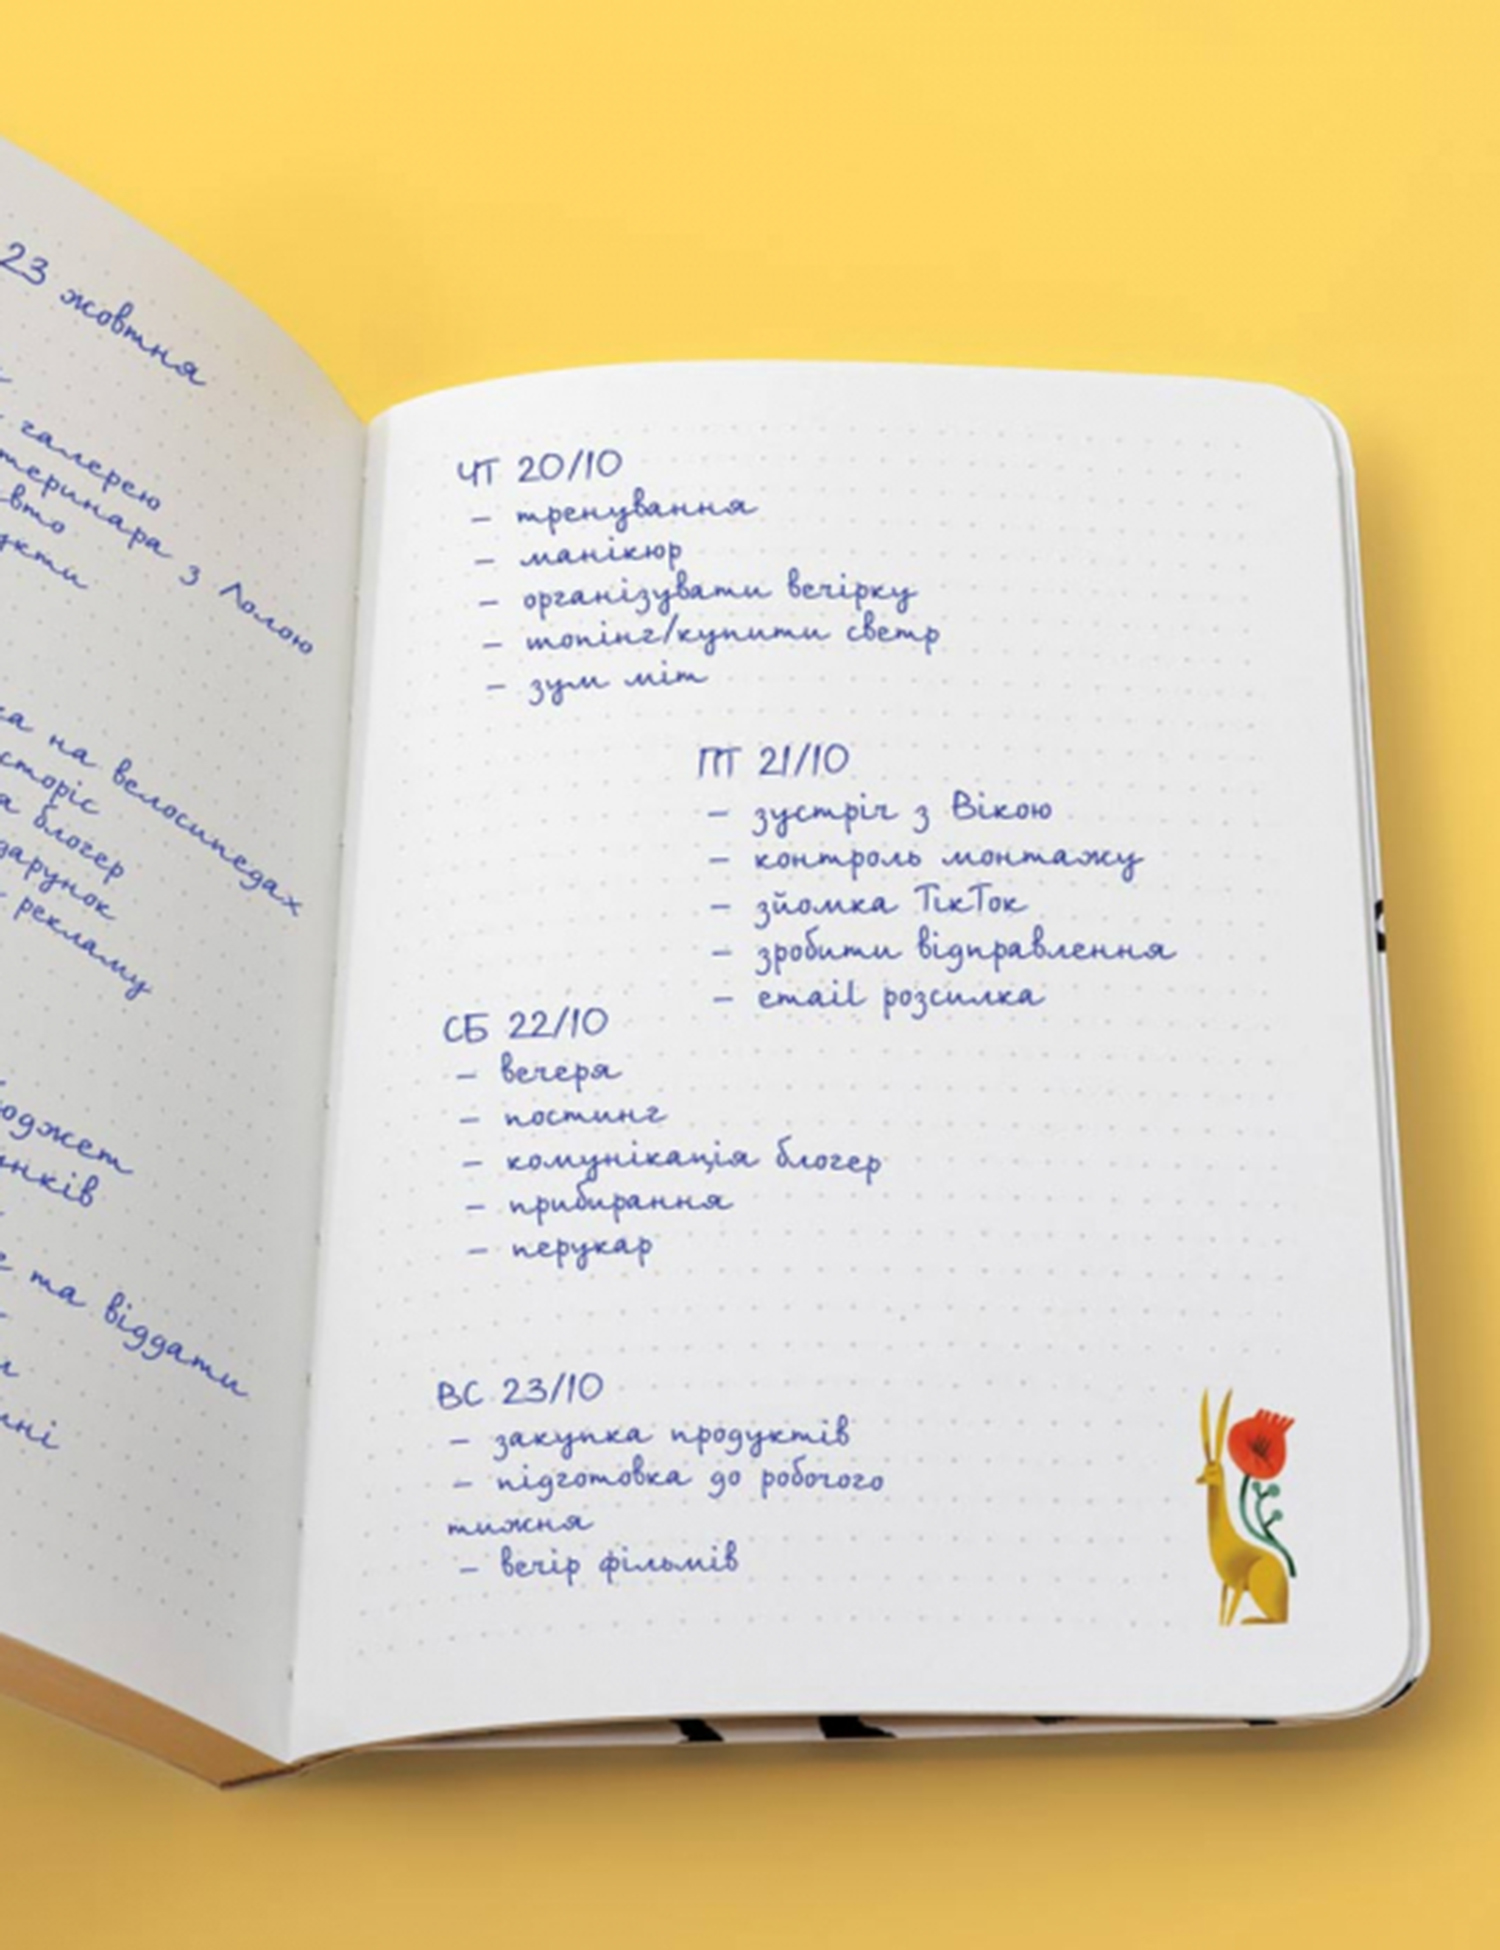 23 жовтня
галерею
з Лолою
на велосипедах
сторіс
блогер
рекламу
та віддати
ЧТ 20/10
– тренування
– манікюр
– організувати вечірку
– шопінг/купити светр
– зум міт
ПТ 21/10
– зустріч з Вікою
– контроль монтажу
– зйомка ТікТок
– зробити відправлення
– email розсилка
СБ 22/10
– вечеря
– постинг
– комунікація блогер
– прибирання
– перукар
ВС 23/10
– закупка продуктів
– підготовка до робочого
тижня
– вечір фільмів